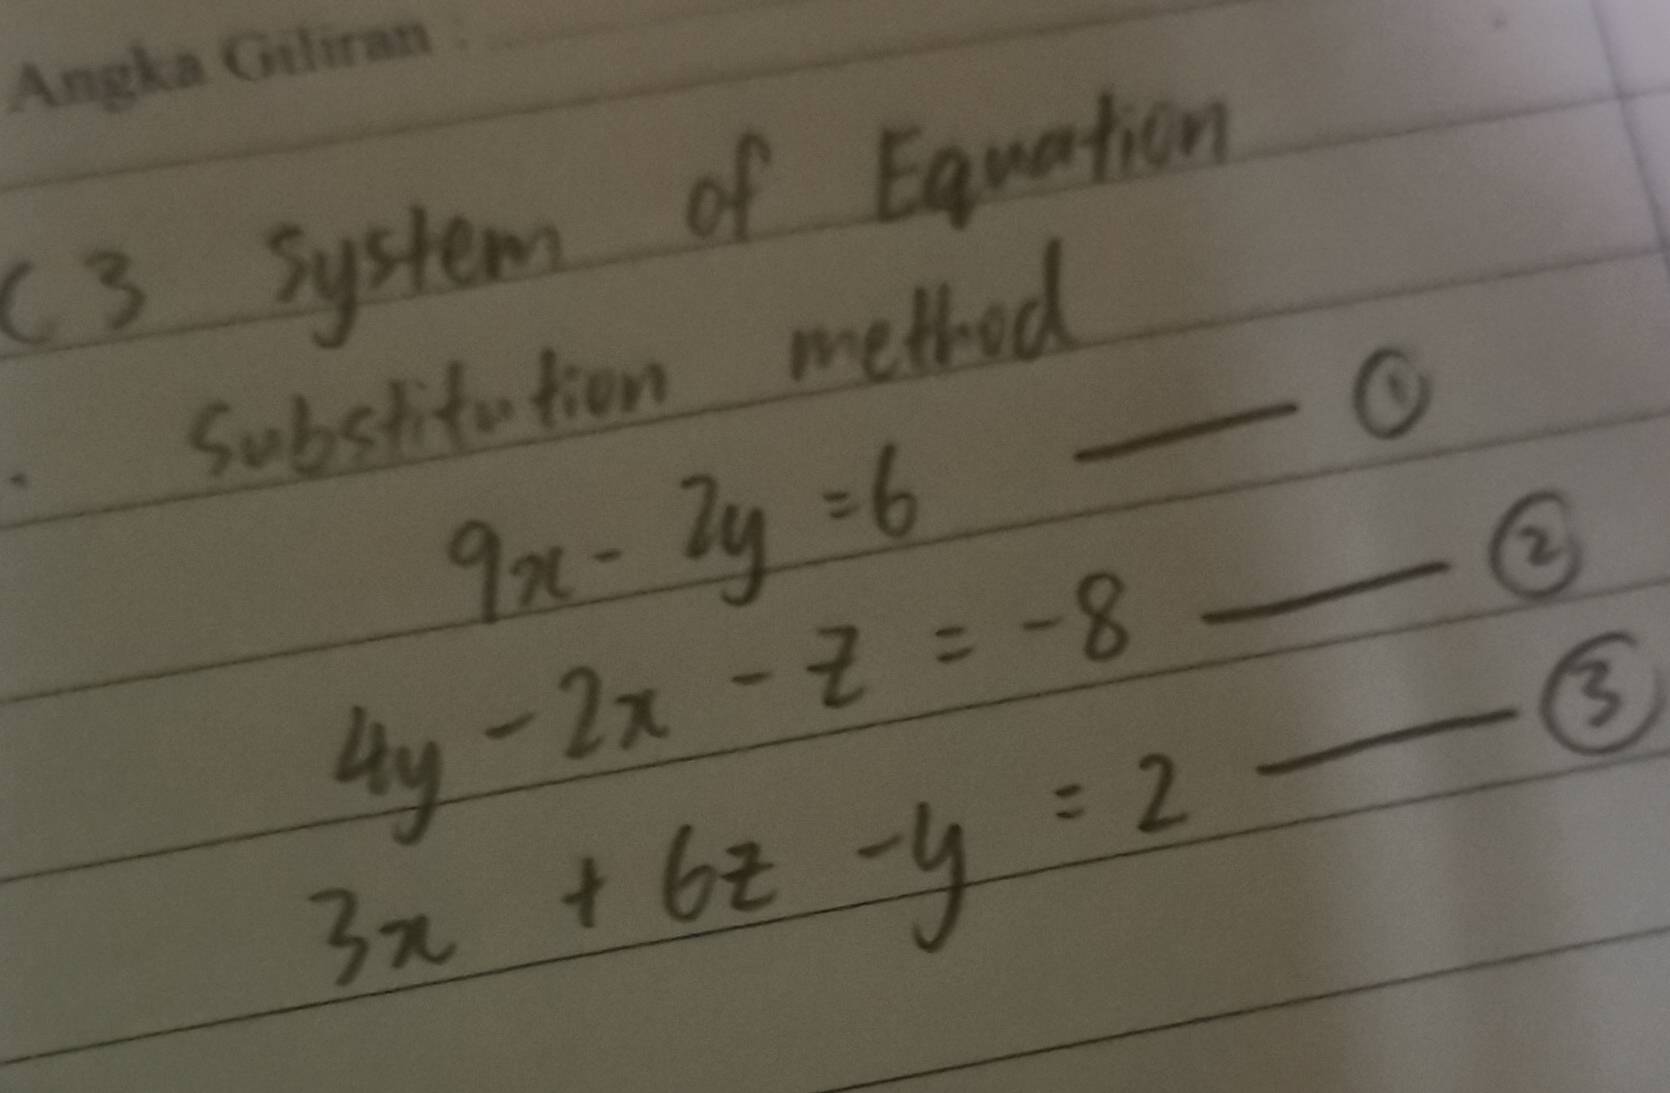 Angka Giliran :
C3 System of Equation
Substitution method
9x - 2y = 6 —— ①
4y - 2x - z = -8 —— ②
3x + 6z - y = 2 —— ③